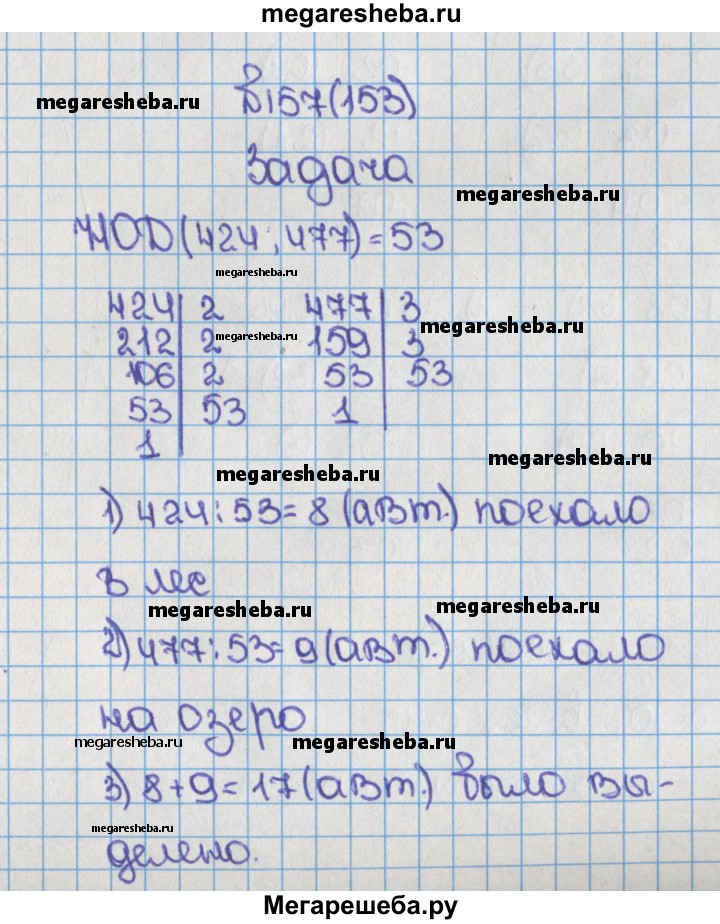 megaresheba.ru
megaresheba.ru
№157(153)
Задача
megaresheba.ru
НОД(424; 477) = 53
megaresheba.ru
424 | 2 477 | 3
megaresheba.ru
212 | 2 159 | 3
megaresheba.ru
106 | 2 53 | 53
53 | 53 1
1
megaresheba.ru
megaresheba.ru
1) 424 : 53 = 8 (авт.) поехало
в лес
megaresheba.ru
megaresheba.ru
2) 477 : 53 = 9 (авт.) поехало
на озеро
megaresheba.ru
megaresheba.ru
3) 8 + 9 = 17 (авт.) было вы-
megaresheba.ru
делено.
Мегарешеба.ру